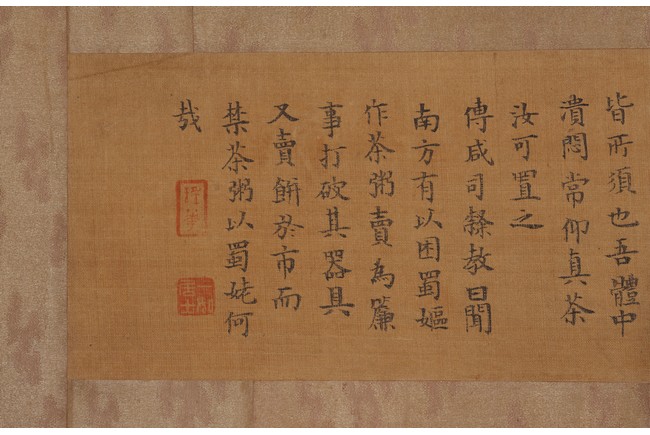 皆所須也吾體中
潰悶常仰真茶
汝可置之
傅咸司隸教曰聞
南方有以困蜀嫗
作茶粥賣為簾
事打破其器具
又賣餅於市而
禁茶粥以蜀姥何
哉